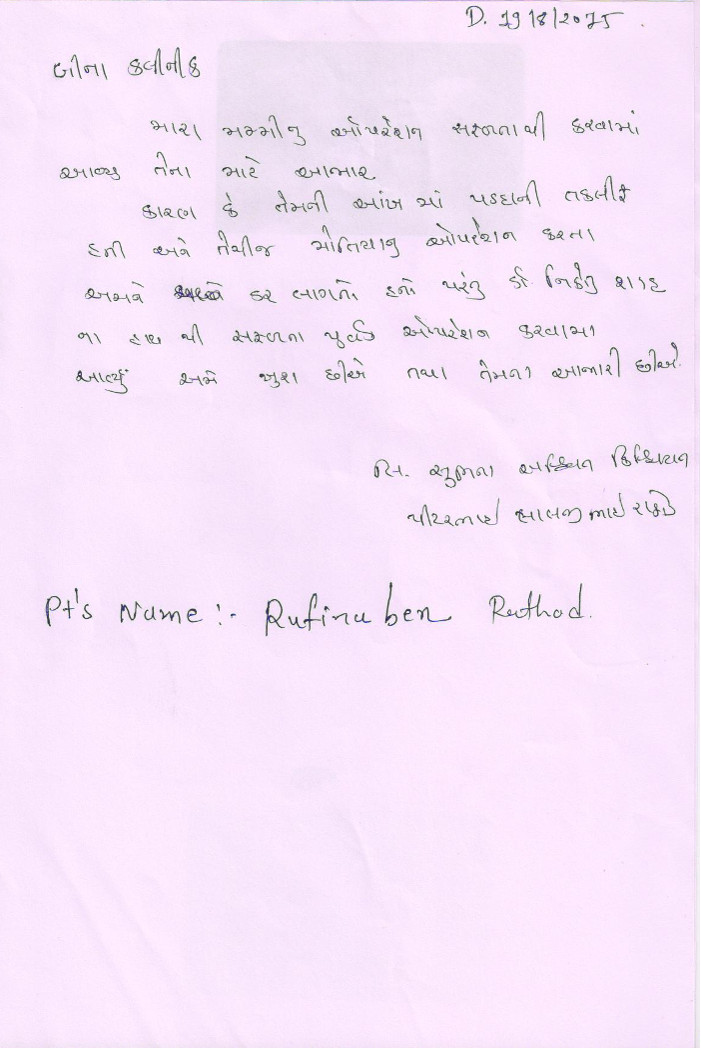 D. 19/8/2015
બીના ક્લીનીક
મારા મમ્મીનુ ઓપરેશન સરળતાથી કરવામાં
આવ્યુ તેના માટે આભાર
કારણ કે તેમની આંખ માં પડદાની તકલીફ
હતી અને તેથીજ મોતિયાનુ ઓપરેશન કરતા
અમને ડર લાગતો હતો પરંતુ ડૉ નિકેતુ શાહ
ના હાથ થી સફળતા પુર્વક ઓપરેશન કરવામા
આવ્યું અમે ખુશ છીએ તથા તેમના આભારી છીએ.
લિ. સુમના અશ્વિન ક્રિશ્ચિયન
પીટરભાઇ લાલજીભાઇ રાઠોડ
Pt's Name :- Rufinaben Rathod.